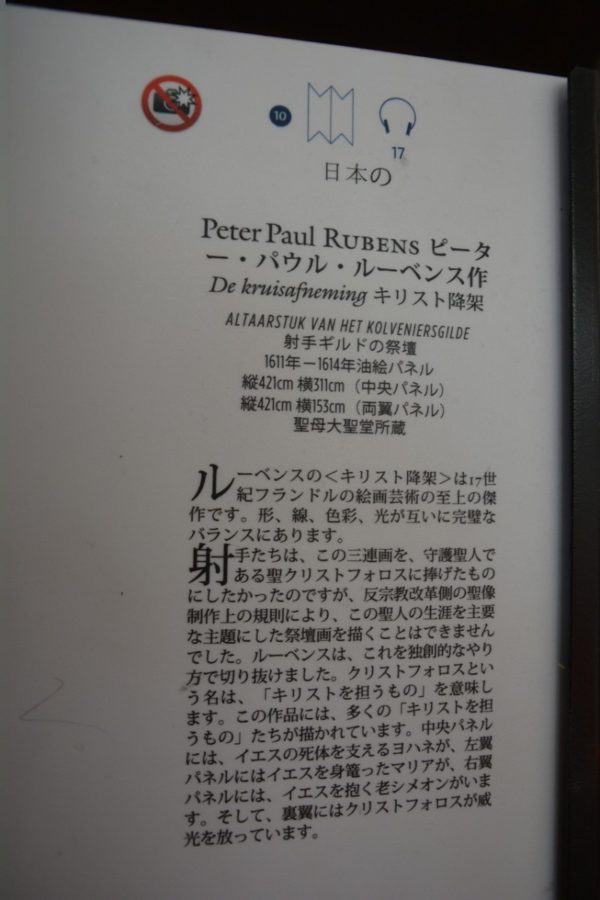 10
17
日本の
Peter Paul RUBENS ピータ
ー・パウル・ルーベンス作
De kruisafneming キリスト降架
ALTAARSTUK VAN HET KOLVENIERSGILDE
射手ギルドの祭壇
1611年－1614年油絵パネル
縦421cm 横311cm（中央パネル）
縦421cm 横153cm（両翼パネル）
聖母大聖堂所蔵
ルーベンスの＜キリスト降架＞は17世
紀フランドルの絵画芸術の至上の傑
作です。形、線、色彩、光が互いに完璧な
バランスにあります。
射手たちは、この三連画を、守護聖人で
ある聖クリストフォロスに捧げたもの
にしたかったのですが、反宗教改革側の聖像
制作上の規則により、この聖人の生涯を主要
な主題にした祭壇画を描くことはできません
でした。ルーベンスは、これを独創的なやり
方で切り抜けました。クリストフォロスとい
う名は、「キリストを担うもの」を意味し
ます。この作品には、多くの「キリストを担
うもの」たちが描かれています。中央パネル
には、イエスの死体を支えるヨハネが、左翼
パネルにはイエスを身篭ったマリアが、右翼
パネルには、イエスを抱く老シメオンがいま
す。そして、裏翼にはクリストフォロスが威
光を放っています。